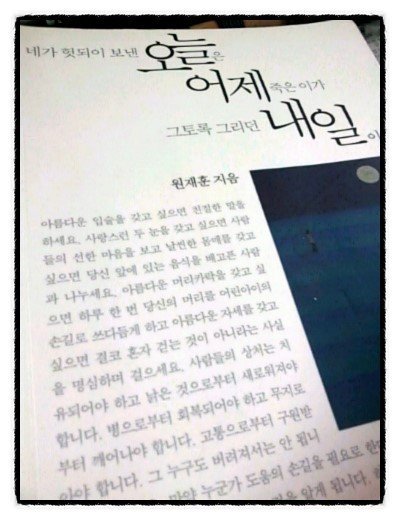 네가 헛되이 보낸 오늘은
어제 죽은 이가
그토록 그리던 내일이
원재훈 지음
아름다운 입술을 갖고 싶으면 친절한 말을
하세요. 사랑스런 두 눈을 갖고 싶으면 사람
들의 선한 마음을 보고 날씬한 몸매를 갖고
싶으면 당신 앞에 있는 음식을 배고픈 사람
과 나누세요. 아름다운 머리카락을 갖고 싶
으면 하루 한 번 당신의 머리를 어린아이의
손길로 쓰다듬게 하고 아름다운 자세를 갖고
싶으면 결코 혼자 걷는 것이 아니라는 사실
을 명심하며 걸으세요. 사람들의 상처는 치
유되어야 하고 낡은 것으로부터 새로워져야
합니다. 병으로부터 회복되어야 하고 무지로
부터 깨어나야 합니다. 고통으로부터 구원받
아야 합니다. 그 누구도 버려져서는 안 됩니
만약 누군가 도움의 손길을 필요로 한
알게 됩니다.